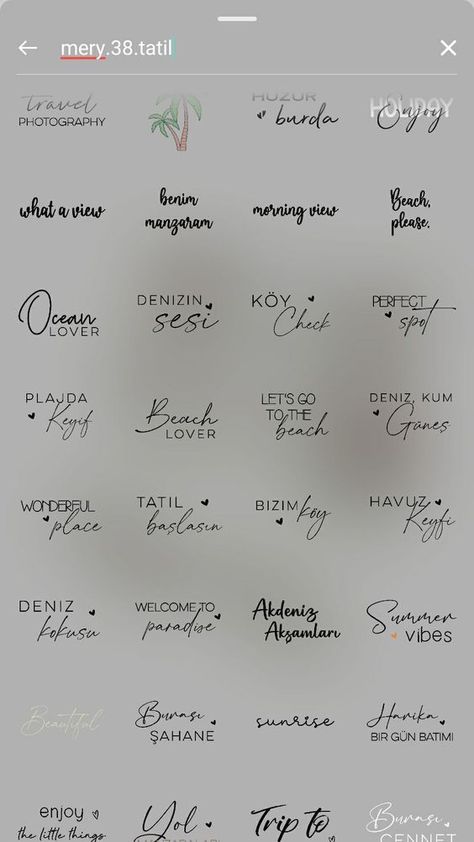 mery.38.tatil
travel
PHOTOGRAPHY
HUZUR
burda
HOLIDAY
Enjoy
what a view
benim
manzaram
morning view
Beach,
please.
Ocean
LOVER
DENIZIN
sesi
KÖY
Check
PERFECT
spot
PLAJDA
Keyif
Beach
LOVER
LET'S GO
TO THE
beach
DENIZ, KUM
Güneş
WONDERFUL
place
TATIL
başlasın
BIZIM
köy
HAVUZ
Keyfi
DENIZ
kokusu
WELCOME TO
paradise
Akdeniz
Akşamları
Summer
vibes
Beautiful
Burası
ŞAHANE
sunrise
Harika
BIR GÜN BATIMI
enjoy
the little things
Yol
Trip to
Burası
CENNET